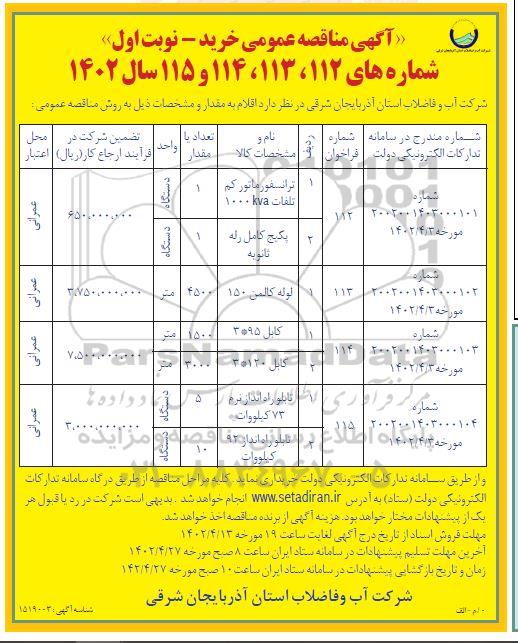 شرکت آب و فاضلاب استان آذربایجان شرقی
«آگهی مناقصه عمومی خرید - نوبت اول»
شماره های ۱۱۲، ۱۱۳، ۱۱۴ و ۱۱۵ سال ۱۴۰۲
شرکت آب و فاضلاب استان آذربایجان شرقی در نظر دارد اقلام به مقدار و مشخصات ذیل به روش مناقصه عمومی:
شماره مندرج در سامانه تدارکات الکترونیکی دولت | شماره فراخوان | ردیف | نام و مشخصات کالا | تعداد یا مقدار | واحد | تضمین شرکت در فرآیند ارجاع کار(ریال) | محل اعتبار
شماره ۲۰۰۲۰۰۱۴۰۳۰۰۰۱۰۱ مورخه ۱۴۰۲/۴/۳ | ۱۱۲ | ۱ | ترانسفورماتور کم تلفات ۱۰۰۰kva | ۱ | دستگاه | ۶۵۰,۰۰۰,۰۰۰ | عمرانی
۲ | پکیج کامل رله ثانویه | ۱ | دستگاه
شماره ۲۰۰۲۰۰۱۴۰۳۰۰۰۱۰۲ مورخه ۱۴۰۲/۴/۳ | ۱۱۳ | ۱ | لوله کالمن ۱۵۰ | ۴۵۰۰ | متر | ۳,۷۵۰,۰۰۰,۰۰۰ | عمرانی
شماره ۲۰۰۲۰۰۱۴۰۳۰۰۰۱۰۳ مورخه ۱۴۰۲/۴/۳ | ۱۱۴ | ۱ | کابل ۹۵*۳ | ۱۵۰۰ | متر | ۷,۵۰۰,۰۰۰,۰۰۰ | عمرانی
۲ | کابل ۱۲۰*۳ | ۳۰۰۰ | متر
شماره ۲۰۰۲۰۰۱۴۰۳۰۰۰۱۰۴ مورخه ۱۴۰۲/۴/۳ | ۱۱۵ | ۱ | تابلو راه انداز نرم ۷۳ کیلووات | ۵ | دستگاه | ۳,۰۰۰,۰۰۰,۰۰۰ | عمرانی
۲ | تابلو راه انداز ۹۲ کیلووات | ۱۰ | دستگاه
ParsNamadData
۰۲۱-۸۸۳۴۹۶۷۰-۵
و از طریق سامانه تدارکات الکترونیکی دولت خریداری نماید. کلیه مراحل مناقصه از طریق درگاه سامانه تدارکات
الکترونیکی دولت (ستاد) به آدرس www.setadiran.ir انجام خواهد شد. بدیهی است شرکت در رد یا قبول هر
یک از پیشنهادات مختار خواهد بود. هزینه آگهی از برنده مناقصه اخذ خواهد شد.
مهلت فروش اسناد از تاریخ درج آگهی لغایت ساعت ۱۹ مورخه ۱۴۰۲/۴/۱۳
آخرین مهلت تسلیم پیشنهادات در سامانه ستاد ایران ساعت ۸ صبح مورخه ۱۴۰۲/۴/۲۷
زمان و تاریخ بازگشایی پیشنهادات در سامانه ستاد ایران ساعت ۱۰ صبح مورخه ۱۴۲/۴/۲۷
شرکت آب و فاضلاب استان آذربایجان شرقی
شناسه آگهی: ۱۵۱۹۰۰۳
۱۰/م - الف